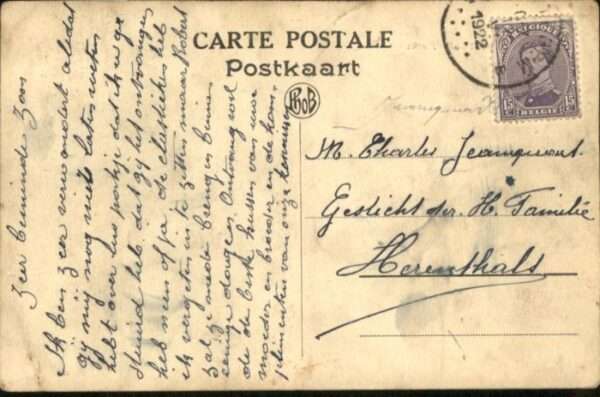 CARTE POSTALE
Postkaart
1922
BELGIQUE
15 15
BELGIË
Zeer beminde Zoon
Ik ben zeer verwonderd alsdat
gij mij nog niets laten weten
hebt over het pakje dat ik u ge
stuurd heb. dat gij het ontvangen
heb neen of ja. de elastieken heb
ik vergeten in te zetten maar Robert
zal ze mede brengen binnen
eenige dagen. Ontvang wel
de beste kussen van uwe
moeder en broeder en de kom
plimenten van onze kennissen
M. Charles Jeanquart.
Gesticht der H. Familie
Herenthals